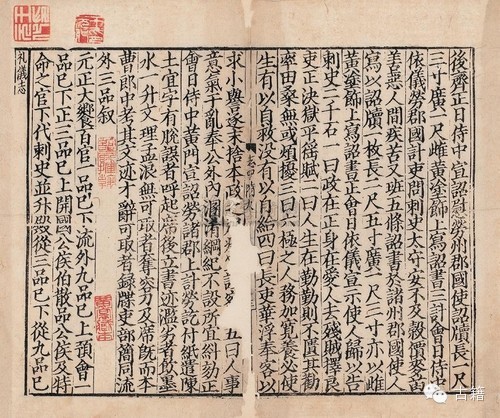 後齊正日侍中宣詔慰勞州郡國使詔牘長一尺
三寸廣一尺雌黃塗飾上寫詔書三計會日侍中
依儀勞郡國計吏問刺史太守安不及穀價麥苗
善惡人間疾苦又班五條詔書於諸州郡國使人
寫以詔牘一枚長二尺五寸廣一尺三寸亦以雌
黃塗飾上寫詔書正會日依儀宣示使人歸以告
刺史二千石一曰政在正身在愛人去殘賊擇良
吏正決獄平徭賦二曰人生在勤勤則不匱其勸
率田桑無或煩擾三曰六極之人務加寬養必使
生有以自救沒有以自給四曰長吏華浮奉客以
求小譽逐末捨本政 五曰人事
意氣干亂奉公外內溷淆綱紀不設所宜糾劾正
會日侍中黃門宣詔勞諸郡上計勞訖付紙遣陳
土宜字有脫誤者呼起席後立書迹濫劣者飲墨
水一升文理孟浪無可取者奪容刀及席既而本
曹郎中考其文迹才辭可取者錄牒吏部簡同流
外三品叙
元正大饗百官一品已下流外九品已上預會一
品已下正三品已上開國公侯伯散品公侯及特
命之官下代刺史並升殿從三品已下從九品已
礼儀志
古籍